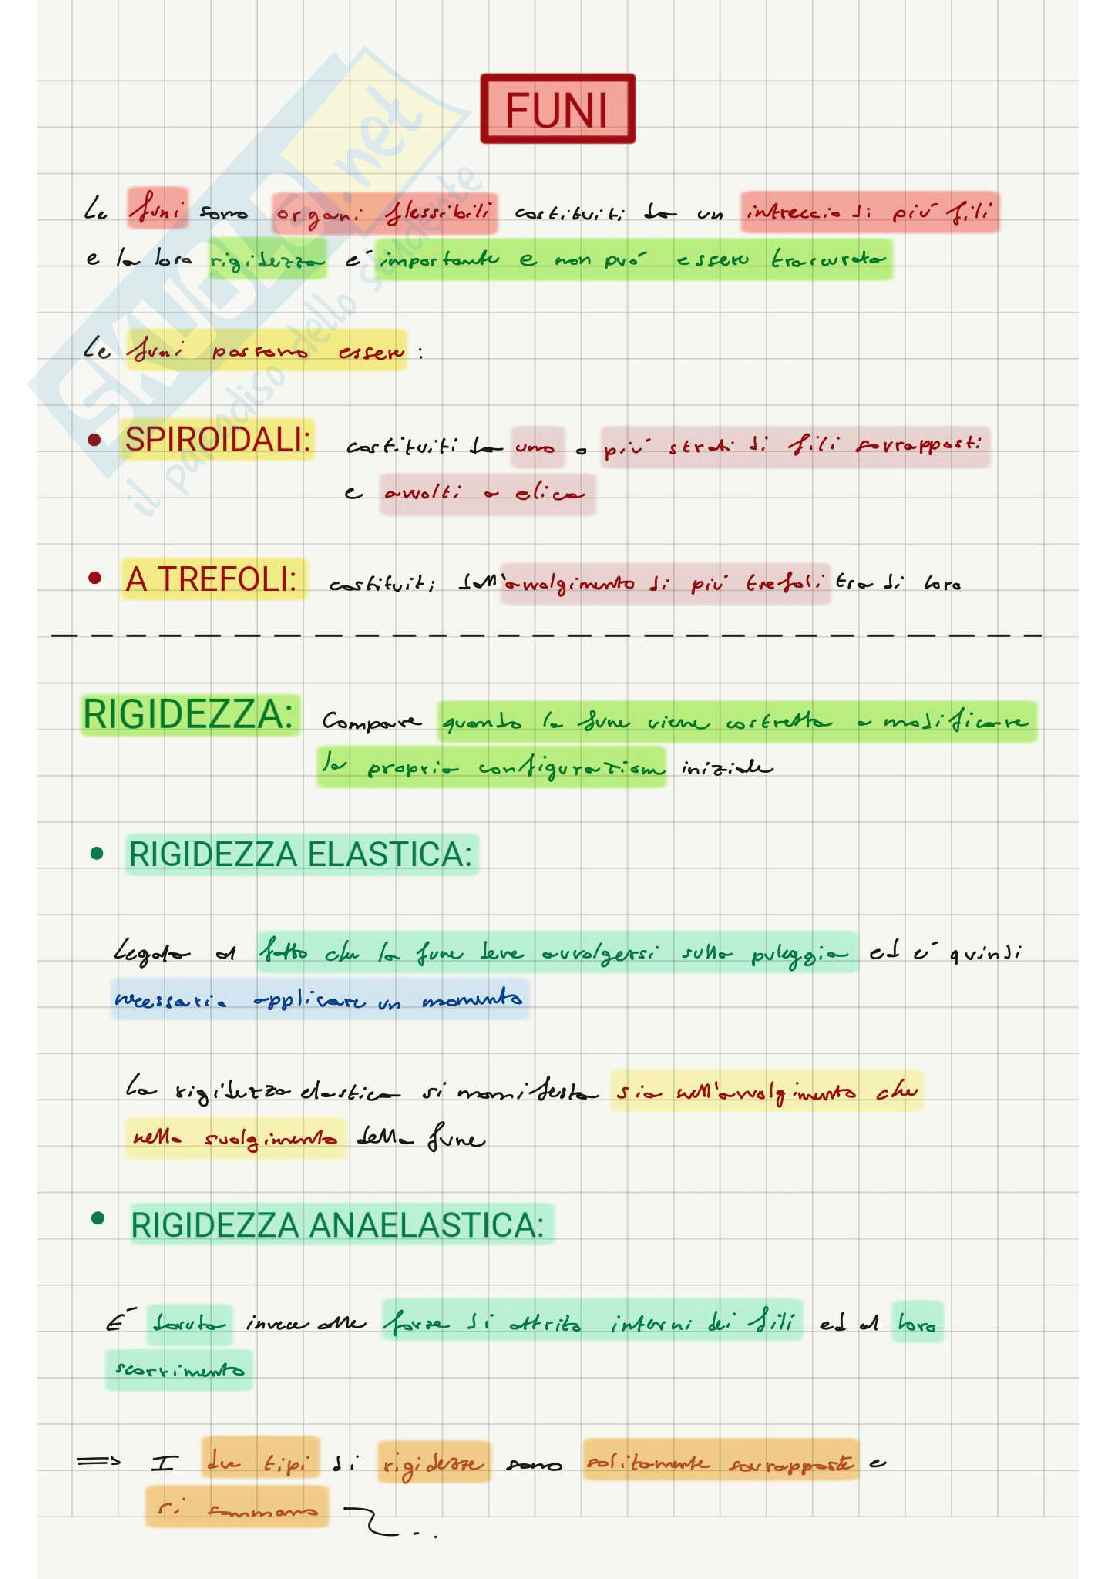 FUNI
Le funi sono organi flessibili costituiti da un intreccio di più fili
e la loro rigidezza e' importante e non può essere trascurata
Le funi possono essere:
• SPIROIDALI: costituiti da uno o più strati di fili sovrapposti
e avvolti a elica
• A TREFOLI: costituiti dall'avvolgimento di più trefoli tra di loro
RIGIDEZZA: Compare quando la fune viene costretta a modificare
la propria configurazione iniziale
• RIGIDEZZA ELASTICA:
Legata al fatto che la fune deve avvolgersi sulla puleggia ed e' quindi
necessario applicare un momento
La rigidezza elastica si manifesta sia nell'avvolgimento che
nello svolgimento della fune
• RIGIDEZZA ANAELASTICA:
E' dovuta invece alle forze di attrito interni dei fili ed al loro
scorrimento
=> I due tipi di rigidezze sono solitamente sovrapposte e
si sommano
SKUOLA.net
il paradiso dello studente